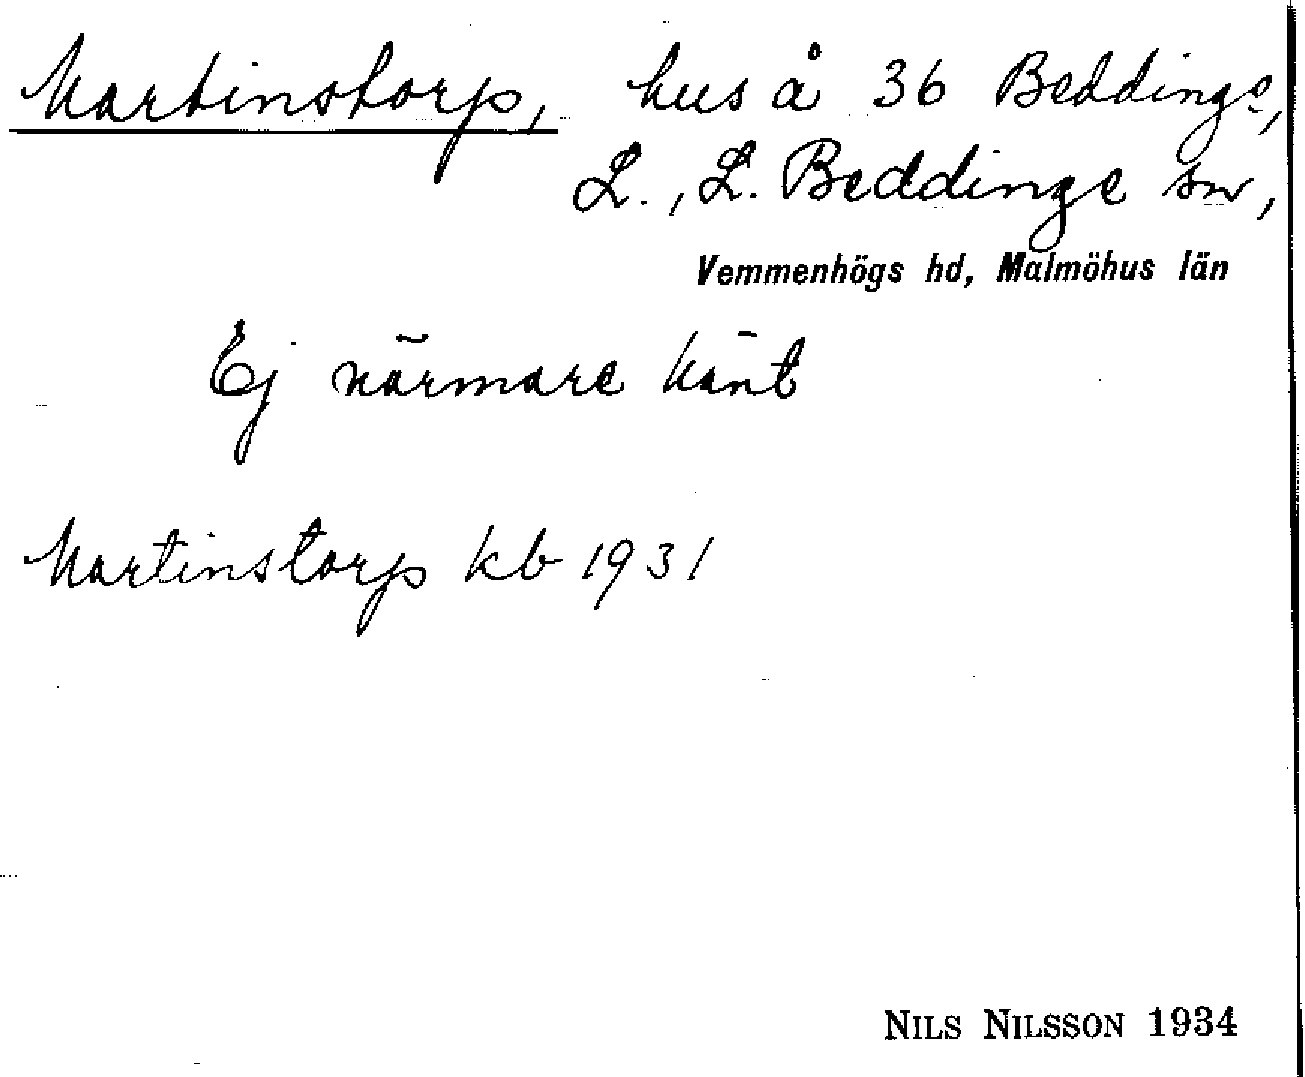 Martinstorp, hus å 36 Beddinge,
L., L. Beddinge sn,
Vemmenhögs hd, Malmöhus län
Ej närmare känt
Martinstorp kb 1931
NILS NILSSON 1934